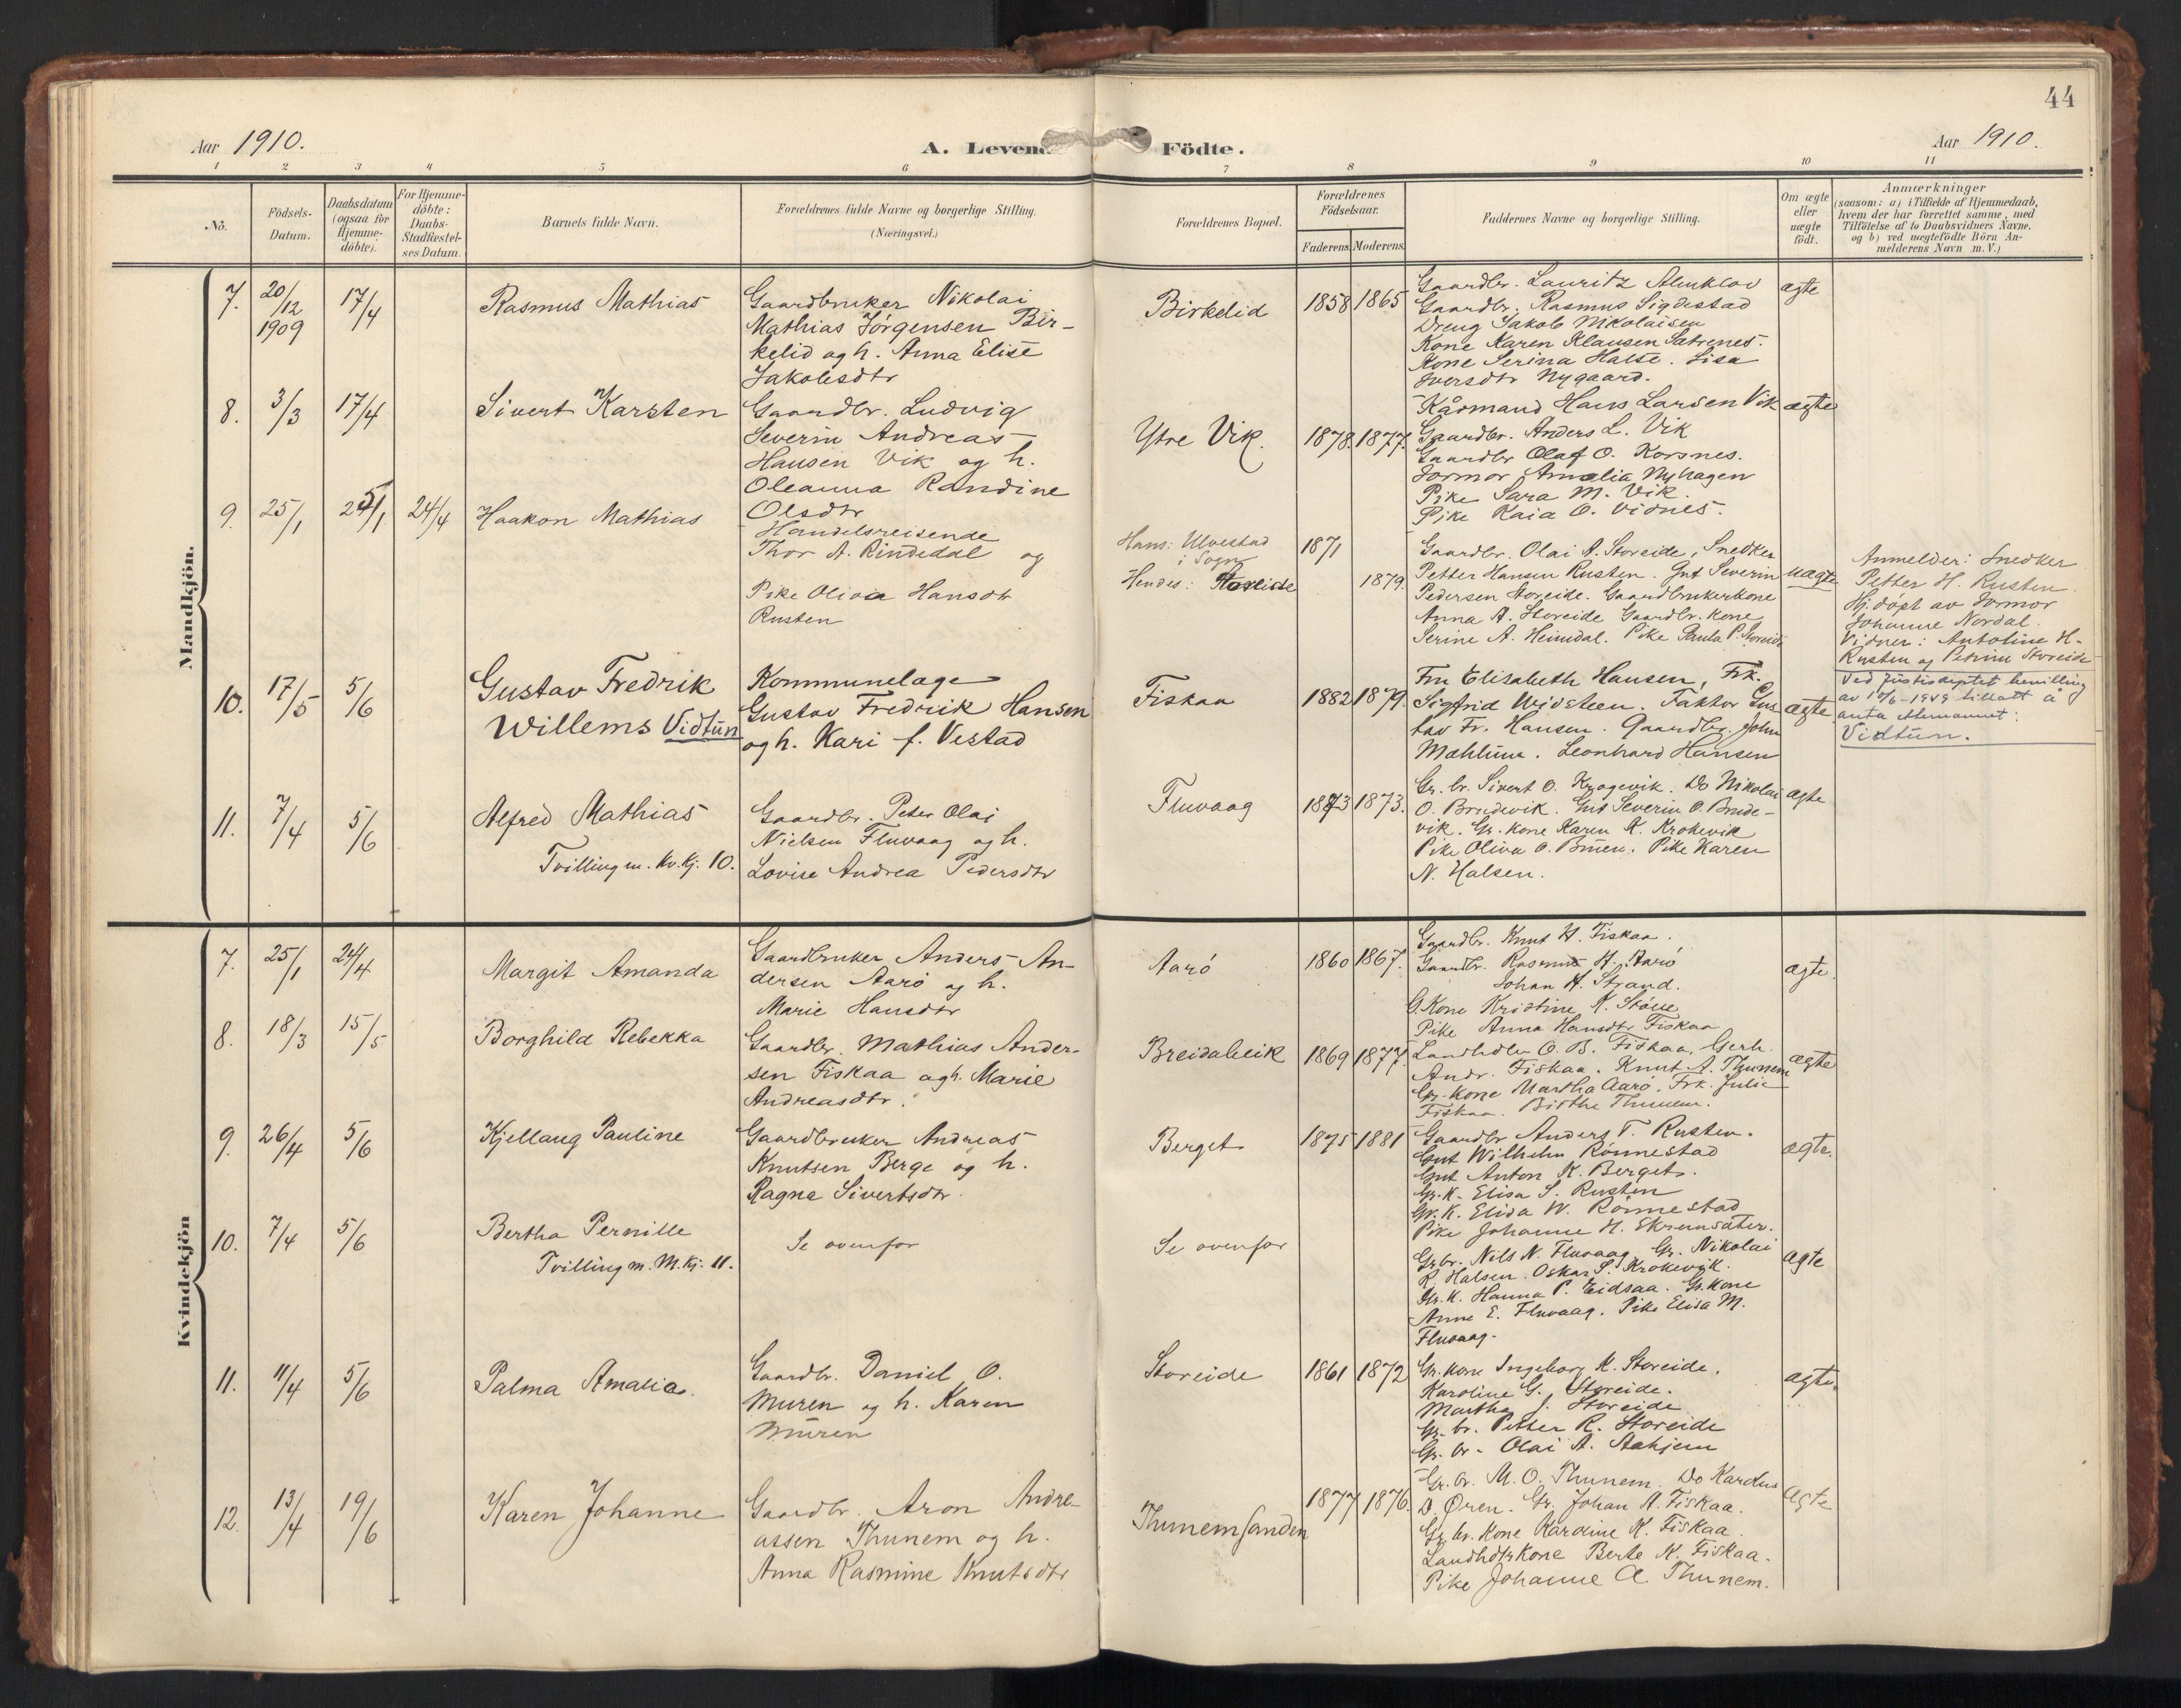 44
Aar 1910.
A. Levende Födte.
Aar 1910.
1 2 3 4 5 6 7 8 9 10 11
No.
Födsels-
Datum.
Daabsdatum
(ogsaa for
Hjemme-
döbte).
For Hjemme-
döbte:
Daabs-
Stadfæstel-
ses Datum.
Barnets fulde Navn.
Forældrenes fulde Navne og borgerlige Stilling.
(Næringsvei.)
Forældrenes Bopæl.
Forældrenes
Födselsaar.
Faderens. Moderens.
Faddernes Navne og borgerlige Stilling.
Om ægte
eller
uægte
födt.
Anmærkninger
(saasom: a) i Tilfælde af Hjemmedaab,
hvem der har forrettet samme, med
Tilföielse af to Daabsvidners Navne.
og b) ved uægtefödte Börn An-
melderens Navn m. V.)
Mandkjön.
7. 20/12 1909 17/4
Rasmus Mathias
Gaardbruker Nikolai
Mathias Jörgensen Bir-
kelid og h. Anna Elise
Jakobsdtr
Birkelid
1858 1865
Gaardbr. Lauritz Almklov
Gaardbr. Rasmus Sigdestad
Dreng Jakob Nikolaisen
Kone Karen Klausen Sætrenes.
Kone Serina Halse. Lisa
Iversdtr Nygaard.
ægte
8. 3/3 17/4
Sivert Karsten
Gaardbr. Ludvig
Severin Andreas
Hansen Vik og h.
Oleanna Randine
Olsdtr
Ytre Vik.
1878. 1877.
Kårmand Hans Larsen Vik
Gaardbr. Anders L. Vik
Gaardbr Olaf O. Korsnes.
Jormor Amalia Nyhagen
Pike Sara M. Vik.
Pike Kaia O. Vidnes.
ægte
9. 25/1 25/1 24/4
Haakon Mathias
Handelsreisende
Thor A. Rindedal og
Pike Olivia Hansdtr
Rusten
Hans: Ulvestad
i Sogn
Hendes: Storeide
1871
1879.
Gaardbr. Olai A. Storeide, Snedker
Petter Hansen Rusten. Gut Severin
Pedersen Storeide. Gaardbrukerkone
Anna A. Storeide Gaardbr. kone
Serine A. Heimdal. Pike Paula P. Storeide
uægte
Anmelder: Snedker
Petter H. Rusten.
Hj. döpt av Jormor
Johanne Nordal.
Vidner: Antoline H.
Rusten og Petrine Storeide
10. 17/5 5/6
Gustav Fredrik
Willems Vidtun
Kommunelæge
Gustav Fredrik Hansen
og h. Kari f. Vestad
Fiskaa
1882 1879.
Fru Elisabeth Hansen, Frk.
Sigfrid Widsteen. Faktor Gus
tav Fr. Hansen. Gaardbr. John
Mehlum. Leonhard Hansen
ægte
Ved Justisdeptet bevilling
av 1949 tillatt å
anta etternavnet:
Vidtun.
11. 7/4 5/6
Alfred Mathias
Tvilling m. Kv. Kj. 10.
Gaardbr. Peter Olai
Nielsen Fluvaag og h.
Lovise Andrea Pedersdtr
Fluvaag
1873 1873.
Gr. br. Sivert O. Krogevik. Do Nikolai
O. Bredevik. Gut Severin O. Brede-
vik. Gr. kone Karen K. Krokevik
Pike Oliva O. Bruen. Pike Karen
N. Halsen.
ægte
Kvindekjön
7. 25/1 24/4
Margit Amanda
Gaardbruker Anders An-
dersen Aarö og h.
Marie Hansdtr
Aarö
1860 1867.
Gaardbr. Knut H. Fiskaa.
Gaardbr. Rasmus H. Aarö
Johan H. Strand.
G. Kone Kristine K. Störe
Pike Anna Hansdtr Fiskaa
ægte.
8. 18/3 15/5
Borghild Rebekka
Gaardbr. Mathias Ander-
sen Fiskaa og h. Marie
Andreasdtr.
Breidableik
1869 1877.
Landhdlr O. B. Fiskaa, Gerh.
Andr. Fiskaa. Knut A. Thunem
Gr. kone Martha Aarö. Frk. Julie
Fiskaa. Birthe Thunem.
ægte
9. 26/4 5/6
Kjellaug Pauline
Gaardbruker Andreas
Knutsen Berge og h.
Ragna Sivertsdtr.
Berget
1875 1881
Gaardbr Anders T. Rusten.
Gut Wilhelm Rönnestad
Gut Anton K. Berget.
Gr. K. Elisa S. Rusten
Gr. K. Elida W. Rönnestad
Pike Johanne H. Skrumsæter.
ægte.
10. 7/4 5/6
Bertha Pernille
Tvilling m. M. Kj. 11.
Se ovenfor
Se ovenfor
Gr br. Nils N. Fluvaag, Gr. Nikolai
R. Halsen. Oskar S. Krokevik.
Gr. K. Hanna P. Eidsaa. Gr. kone
Anne E. Fluvaag. Pike Elisa M.
Fluvaag.
ægte
11. 11/4 5/6
Palma Amalia.
Gaardbr. Daniel O.
Muren og h. Karen
Muren
Storeide
1861 1872
Gr. kone Ingeborg K. Storeide.
Karoline G. Storeide.
Martha J. Storeide
Gr. br. Petter R. Storeide
Gr. br. Olai A. Aahjem
ægte.
12. 13/4 19/6
Karen Johanne
Gaardbr. Aron Andre-
assen Thunem og h.
Anna Rasmine Knutsdtr
Thunemsanden
1877 1876.
Gr. br. M. O. Thunem. Do Kardus
D. Ören. Gr. Johan A. Fiskaa.
Gr. br. Kone Karoline K. Fiskaa.
Landhdlr kone Berte K. Fiskaa.
Pike Johanne A. Thunem.
ægte